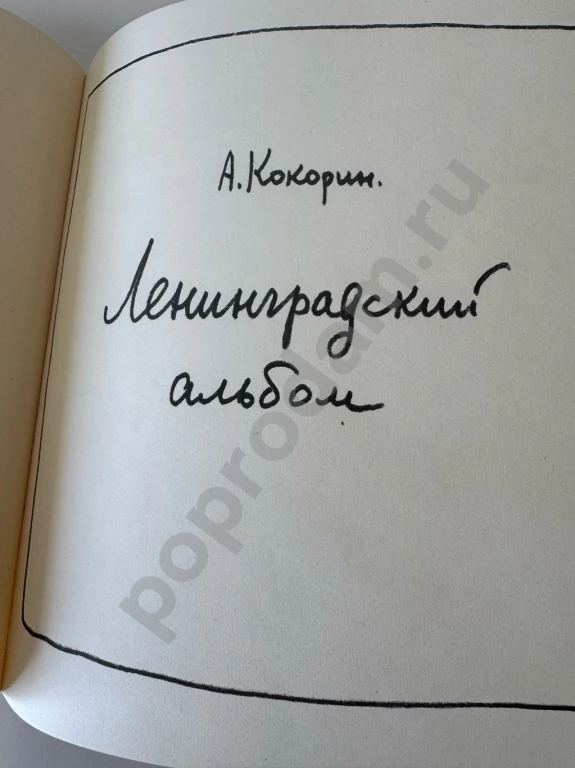 А. Кокорин.
Ленинградский
альбом
poprodam.ru